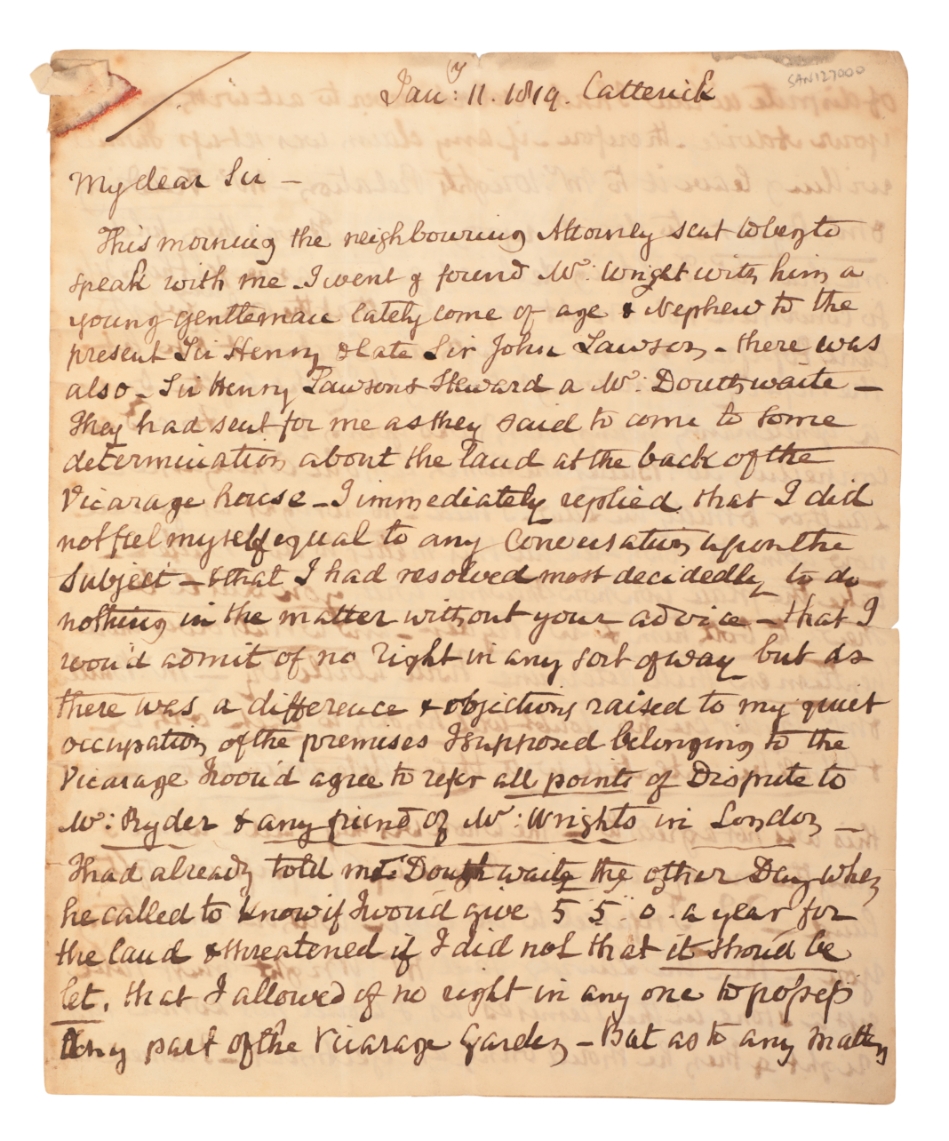 SAN127000
Jan:y 11. 1819. Catterick
My dear Sir —
This morning the neighbouring Attorney sent to beg to
speak with me - I went & found Mr: Wright with him a
young gentleman lately come of age & Nephew to the
present Sir Henry & late Sir John Lawson - there was
also - Sir Henry Lawsons Steward a Mr: Douthwaite —
They had sent for me as they said to come to some
determination about the land at the back of the
Vicarage house - I immediately replied that I did
not feel myself equal to any Conversation upon the
Subject - & that I had resolved most decidedly to do
nothing in the matter without your advice - that I
wou'd admit of no right in any sort of way but as
there was a difference & objections raised to my quiet
occupation of the premises I supposed belonging to the
Vicarage I wou'd agree to refer all points of Dispute to
Mr: Ryder & any friend of Mr: Wrights in London —
I had already told Mr: Douthwaite the other Day when
he called to know if I wou'd give 5 5. 0. a year for
the land & threatened if I did not that it shou'd be
let, that I allowed of no right in any one to possess
any part of the Vicarage Garden - But as to any matters